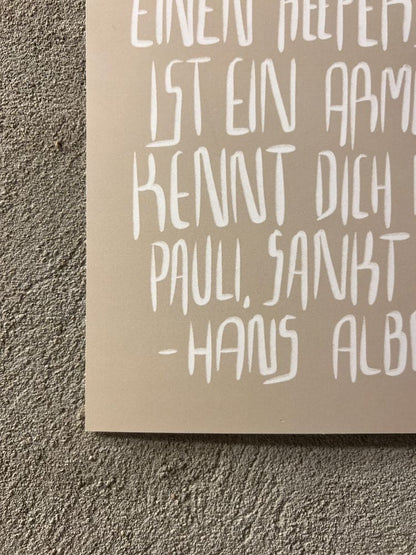 EINEN
IST EIN ARM
KENNT DICH
PAULI, SANKT
-HANS ALB